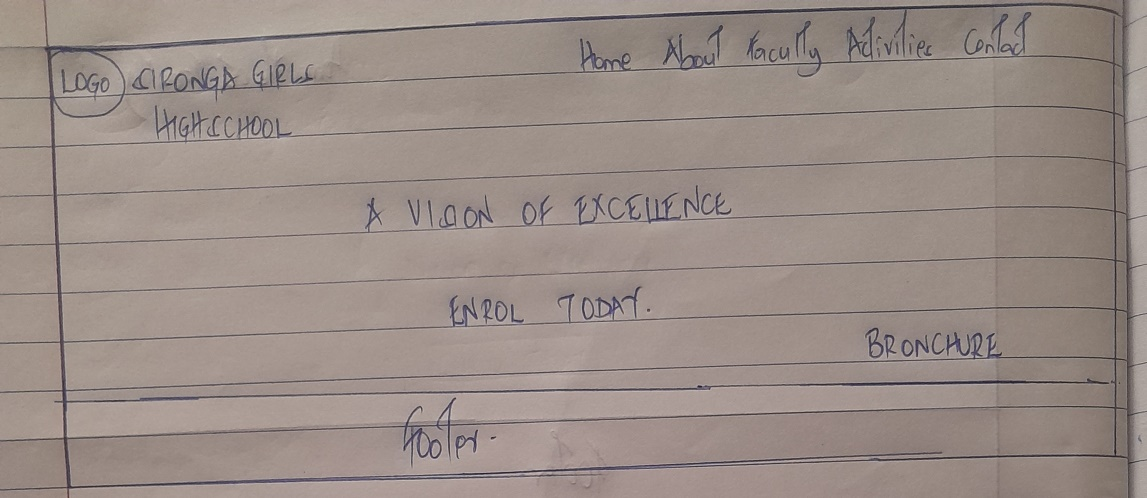 LOGO SIRONGA GIRLS
HIGHSCHOOL
Home About Faculty Activities Contact
A VISION OF EXCELLENCE
ENROL TODAY.
BRONCHURE
footer.